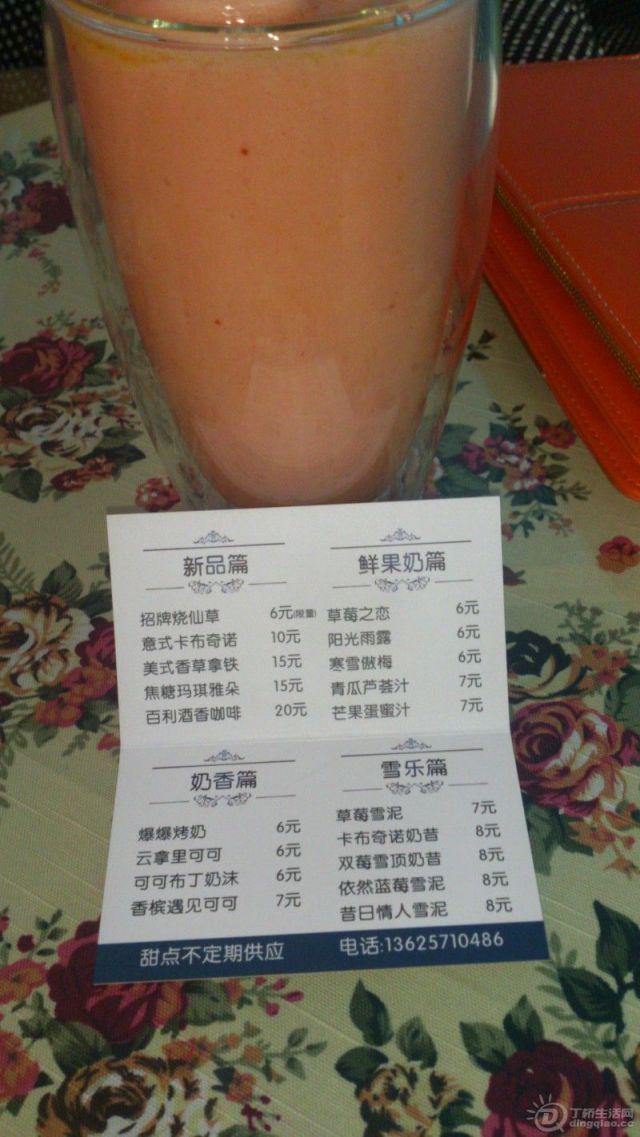 新品篇
招牌烧仙草 6元(限量)
意式卡布奇诺 10元
美式香草拿铁 15元
焦糖玛琪雅朵 15元
百利酒香咖啡 20元
鲜果奶篇
草莓之恋 6元
阳光雨露 6元
寒雪傲梅 6元
青瓜芦荟汁 7元
芒果蛋蜜汁 7元
奶香篇
爆爆烤奶 6元
云拿里可可 6元
可可布丁奶沫 6元
香槟遇见可可 7元
雪乐篇
草莓雪泥 7元
卡布奇诺奶昔 8元
双莓雪顶奶昔 8元
依然蓝莓雪泥 8元
昔日情人雪泥 8元
甜点不定期供应 电话:13625710486
丁桥生活网
dingqiao.cc